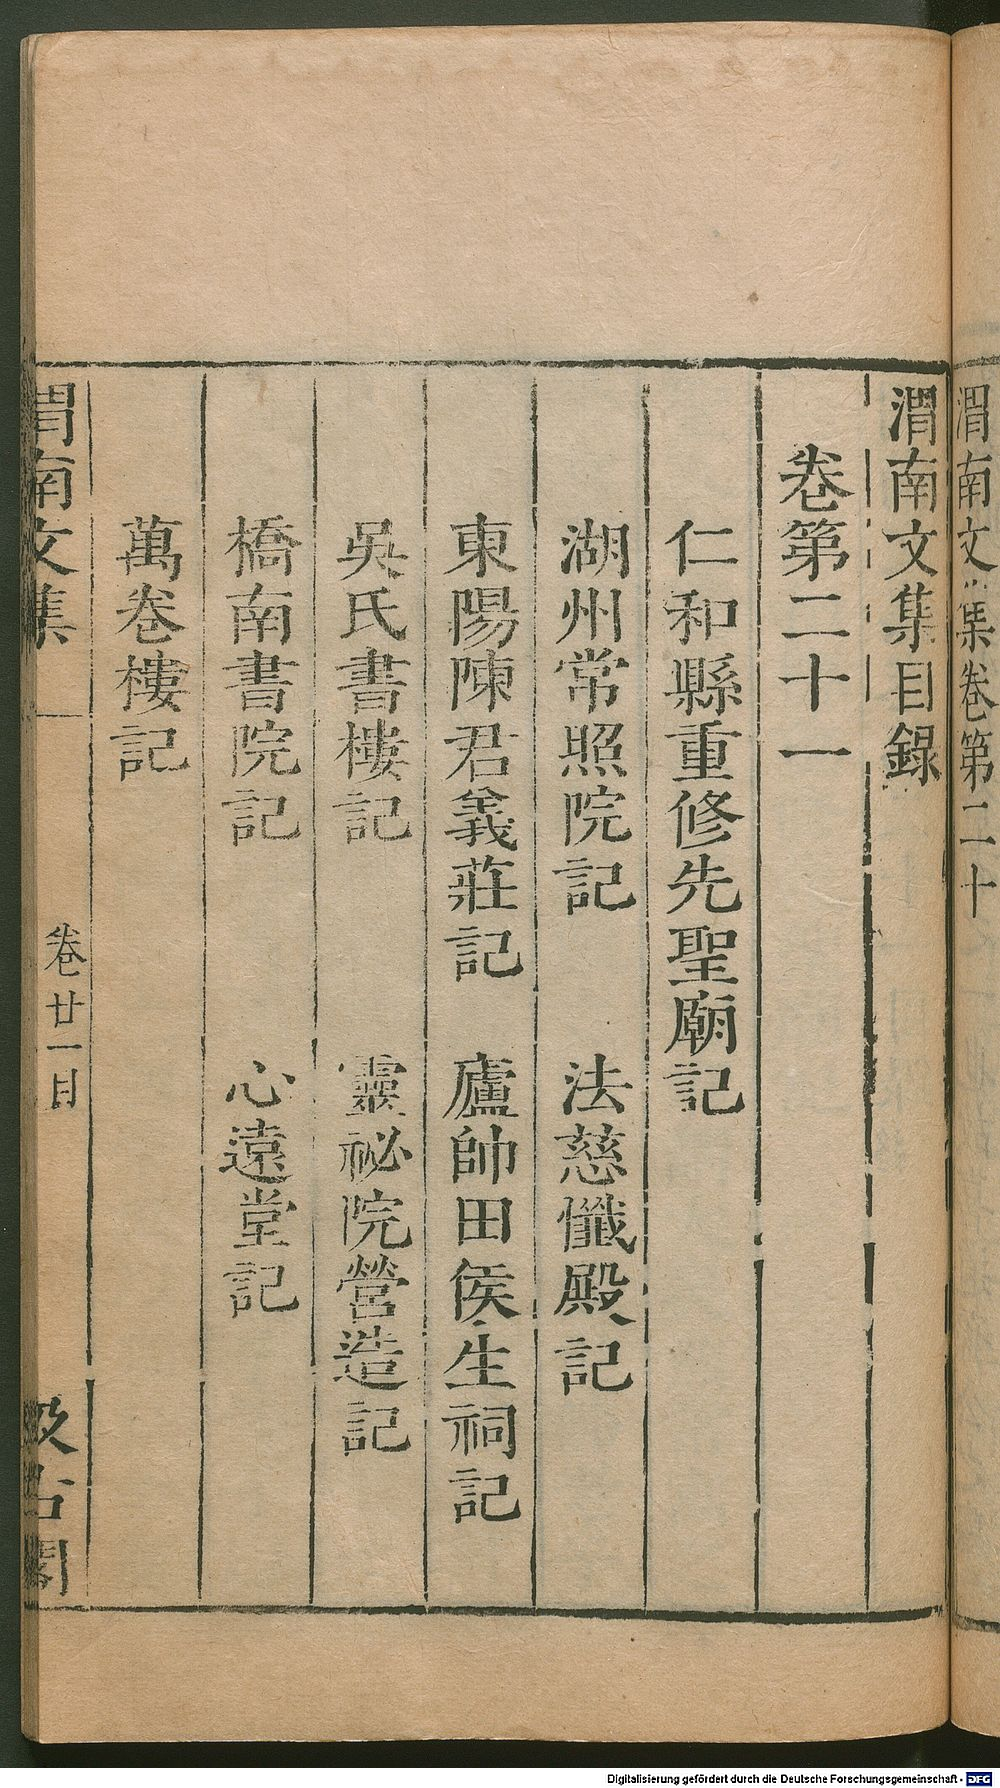 渭南文集卷第二十
渭南文集目錄
卷第二十一
仁和縣重修先聖廟記
湖州常照院記 法慈懺殿記
東陽陳君義莊記 廬帥田侯生祠記
吳氏書樓記 靈祕院營造記
橋南書院記 心遠堂記
萬卷樓記
渭南文集 卷廿一目 汲古閣
Digitalisierung gefördert durch die Deutsche Forschungsgemeinschaft - DFG